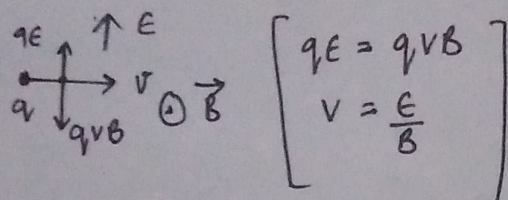 qE ↑ E
q → v
qvB ⊙ B⃗
qE = qvB
v = E/B